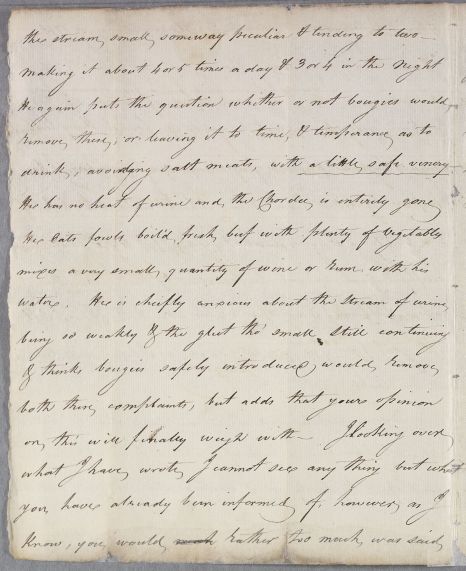 the stream, small, someway peculiar & tending to two—
making it about 4 or 5 times a day & 3 or 4 in the night
He again puts the question whether or not bougies would
remove these, or leaving it to time, & temperance as to
drink, avoiding salt meats, with a little safe venery—
He has no heat of urine and the Chordee is entirely gone
Hee Eats fowls boil'd fresh beef with plenty of Vegitables
mixes a very small quantity of wine or rum with his
water. Hee is cheifly anxious about the stream of urine
being so weakly & the gleet tho' small still continuing
& thinks bougies safely introduced would remove
both these complaints, but adds that yours opinion
on this will finally weigh with— I looking over
what I have wrote, I cannot see any thing but what
you have already been informed of, however as I
know, you would rather too much was said